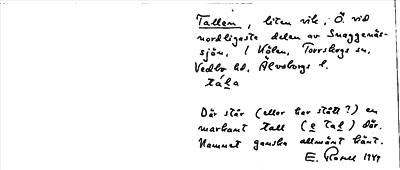 Tallen, liten vik, Ö. vid
nordligaste delen av Snaggenäs-
sjön, i Kölen, Torrskogs sn,
Vedbo hd, Älvsborgs l.
Där står (eller har stått?) en
markant tall (e tal) där.
Namnet ganska allmänt känt.
E. Rosell 1949